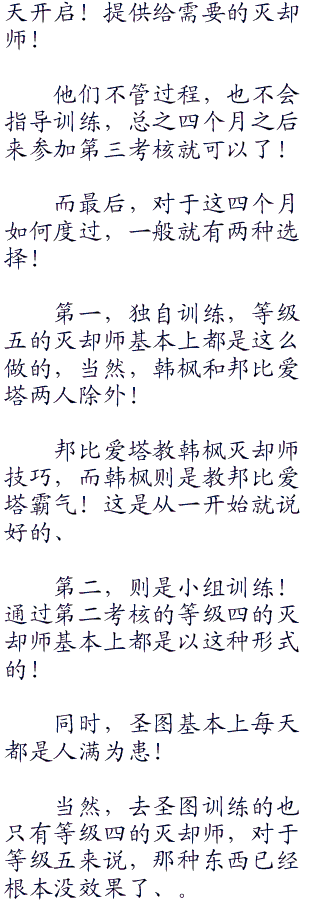 天开启！提供给需要的灭却
师！
他们不管过程，也不会
指导训练，总之四个月之后
来参加第三考核就可以了！
而最后，对于这四个月
如何度过，一般就有两种选
择！
第一，独自训练，等级
五的灭却师基本上都是这么
做的，当然，韩枫和邦比爱
塔两人除外！
邦比爱塔教韩枫灭却师
技巧，而韩枫则是教邦比爱
塔霸气！这是从一开始就说
好的、
第二，则是小组训练！
通过第二考核的等级四的灭
却师基本上都是以这种形式
的！
同时，圣图基本上每天
都是人满为患！
当然，去圣图训练的也
只有等级四的灭却师，对于
等级五来说，那种东西已经
根本没效果了、。